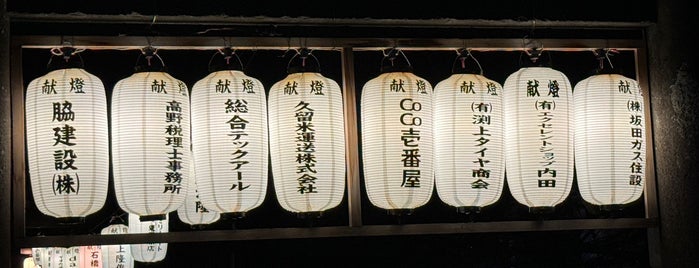 献燈
脇建設(株)
献燈
高野税理士事務所
献燈
総合テックアール
献燈
久留米運送株式会社
献燈
CoCo壱番屋
献燈
(有)渕上タイヤ商会
献燈
(有)エクセレントショップ内田
献燈
(株)坂田ガス住設
石橋
上隆